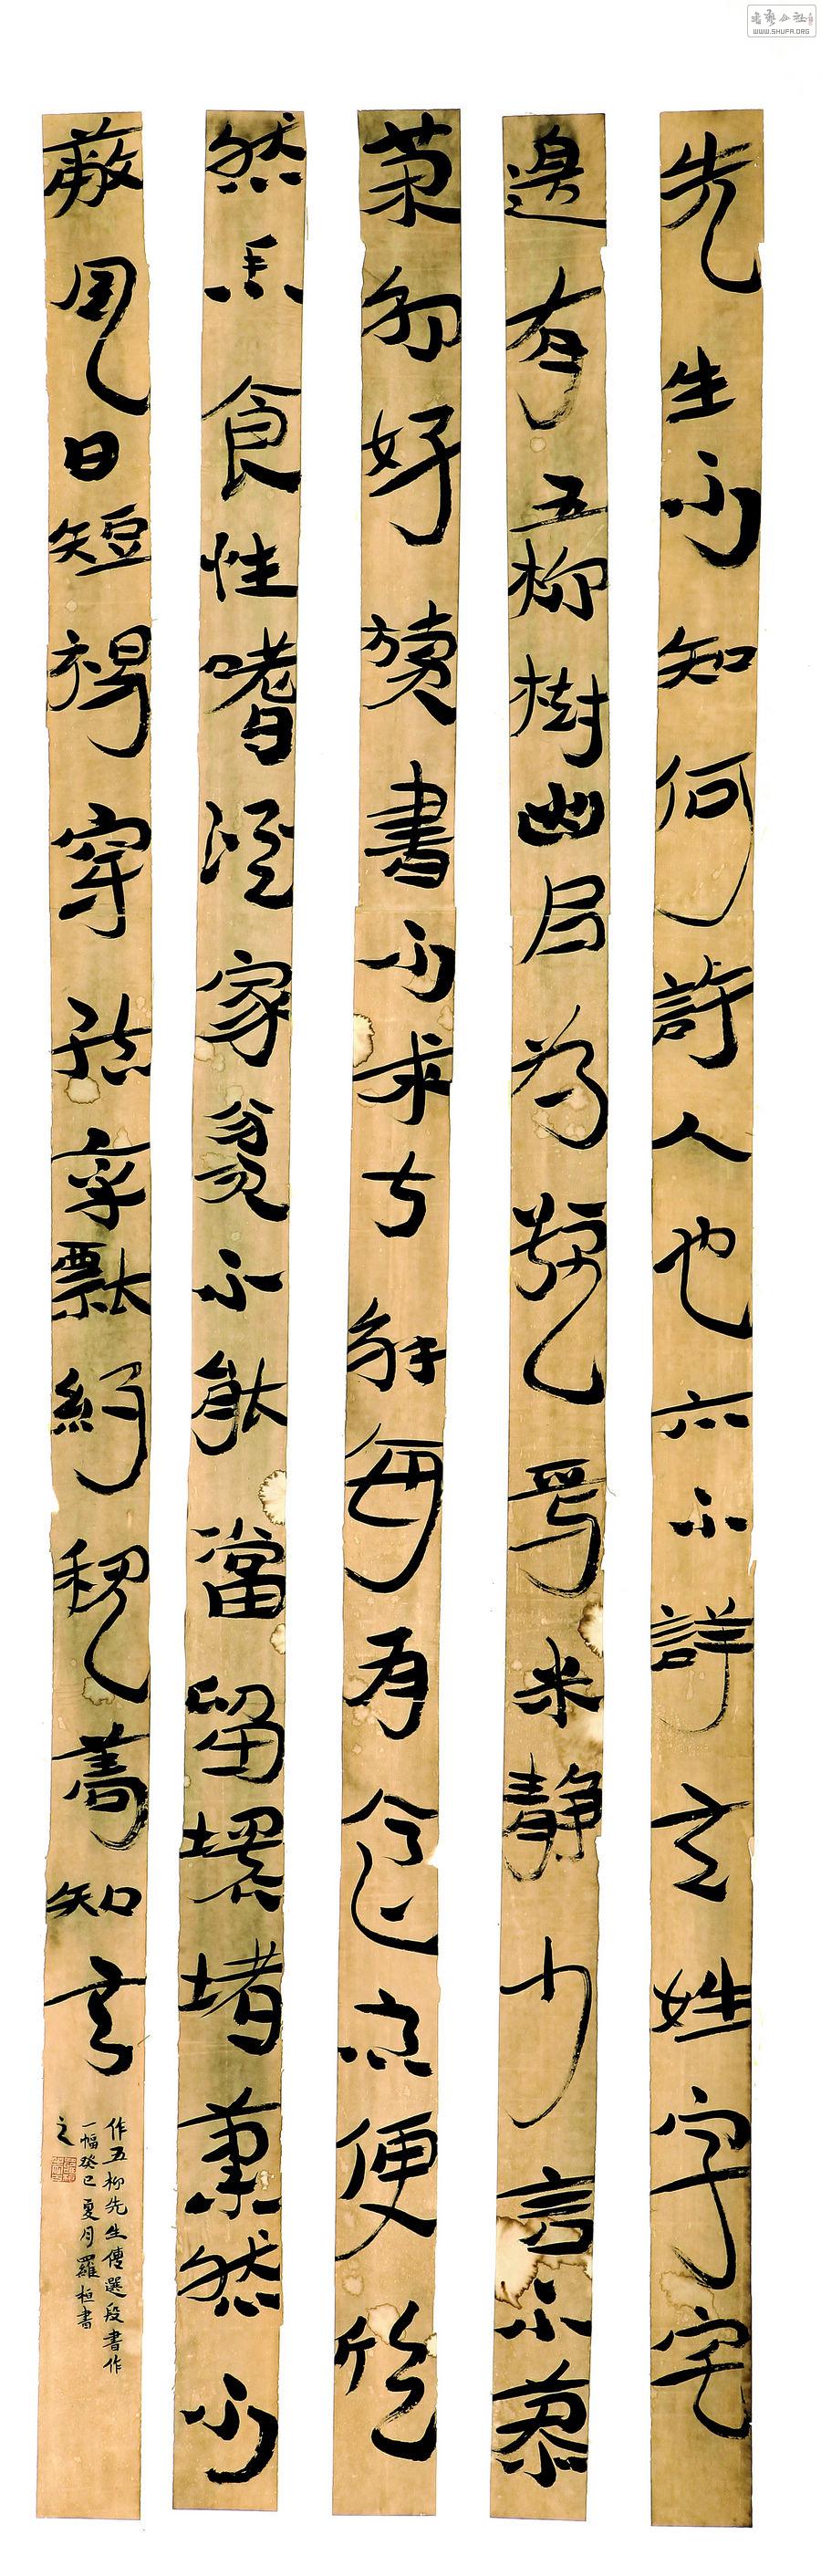 書藝公社
WWW.SHUFA.ORG
先生不知何許人也亦不詳其姓字宅
邊有五柳樹因以為號焉靜少言不慕
榮利好讀書不求甚解每有會意便欣
然忘食性嗜酒家貧不能當環堵蕭然不
蔽風日短褐穿瓢知
作五柳先生傳選段書作
一幅癸巳夏月羅桓書
之